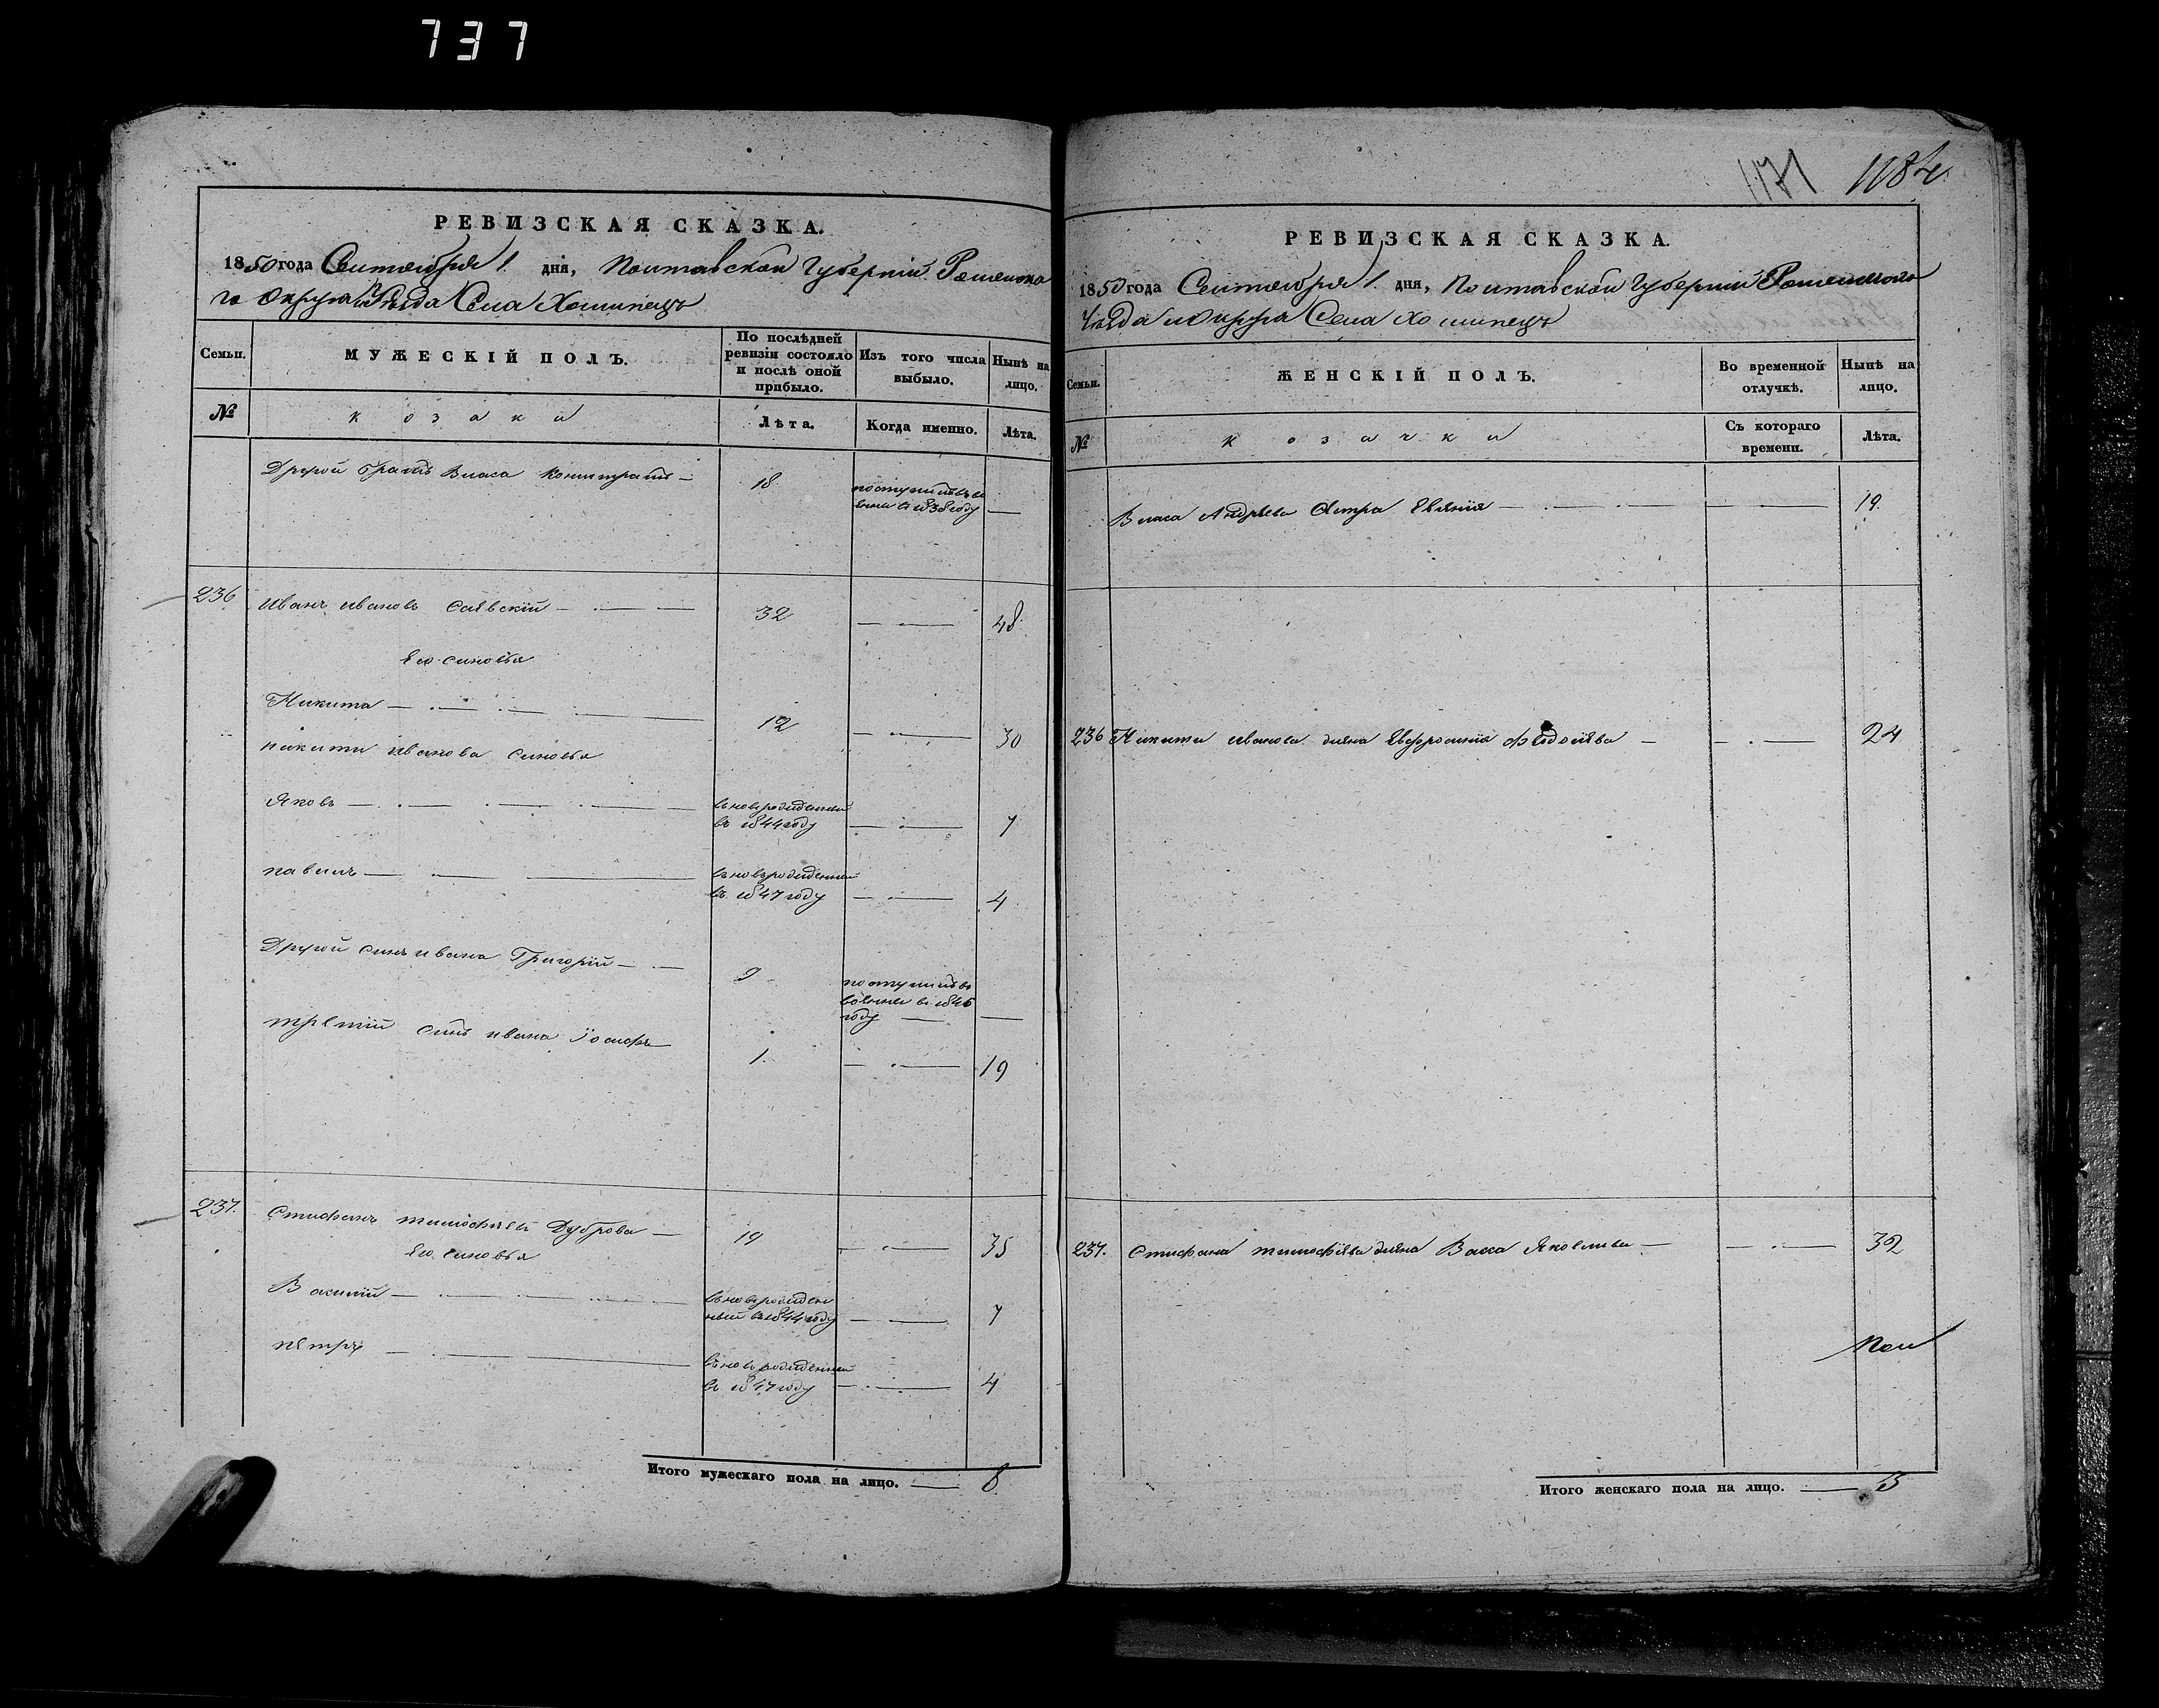 737
РЕВИЗСКАЯ СКАЗКА.
1850 года Сентября 1. дня, Полтавской Губерніи Роменска
го Округа и Уѣзда Села Хоминецъ
Семьи.
МУЖЕСКІЙ ПОЛЪ.
По послѣдней ревизіи состояло и послѣ оной прибыло.
Изъ того числа выбыло.
Нынѣ на лицо.
№
козаки
Лѣта.
Когда именно.
Лѣта.
Другой братъ Власа Кондратъ — 18 поступилъ въ во
енни в 1838 году —
236 Иванъ Ивановъ Саевскій — 32 — 48
Его синовья
Никита — 12 — 30
Никити Иванова синовья
Яковъ — вновърожденный
въ 1844 году — 7
Павилъ — вновърожденный
въ 1847 году — 4
Другой синъ Ивана Григорій — 9 поступилъ въ
военни в 1846
году —
третій синъ Ивана Іосифъ 1. — 19
237. Стифанъ тимофѣевъ Дуброва — 19 — 35
Его синовья
Василій — вновърожден
ный въ 1844 году — 7
Петръ — вновърожденный
въ 1847 году — 4
Итого мужескаго пола на лицо. — 8
1171 1184
РЕВИЗСКАЯ СКАЗКА.
1850 года Сентября 1. дня, Полтавской Губерніи Роменского
Уѣзда и Округа Села Хоминецъ
Семьи.
ЖЕНСКІЙ ПОЛЪ.
Во временной отлучкѣ.
Нынѣ на лицо.
№
козачки
Съ котораго времени.
Лѣта.
Власа Андрѣева сестра Евгенія — 19.
236 Никити Иванова жена Евфросинія Федосіева — 24
237. Стифана тимофіева жена Васса Яковлива — 32
Итого женскаго пола на лицо. — 3